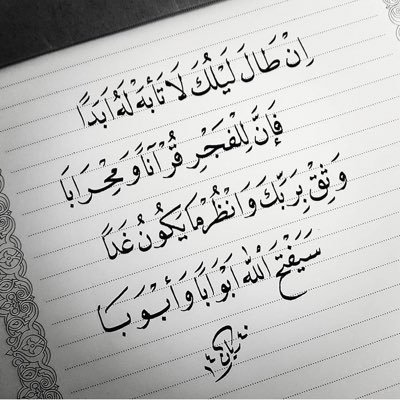 اِنْ طَالَ لَيْلُكَ لَا تَأبَهْ لَهُ اَبَدًا
فَإنَّ لِلْفَجْرِ قُرْآناً وَمِحْرَابَا
وَثِقْ بِرَبِّكَ وَانْظُرْ مَا يَكُونُ غَدًا
سَيَفْتَحُ اللهُ ابْوَابًا وَأبْوَابَا